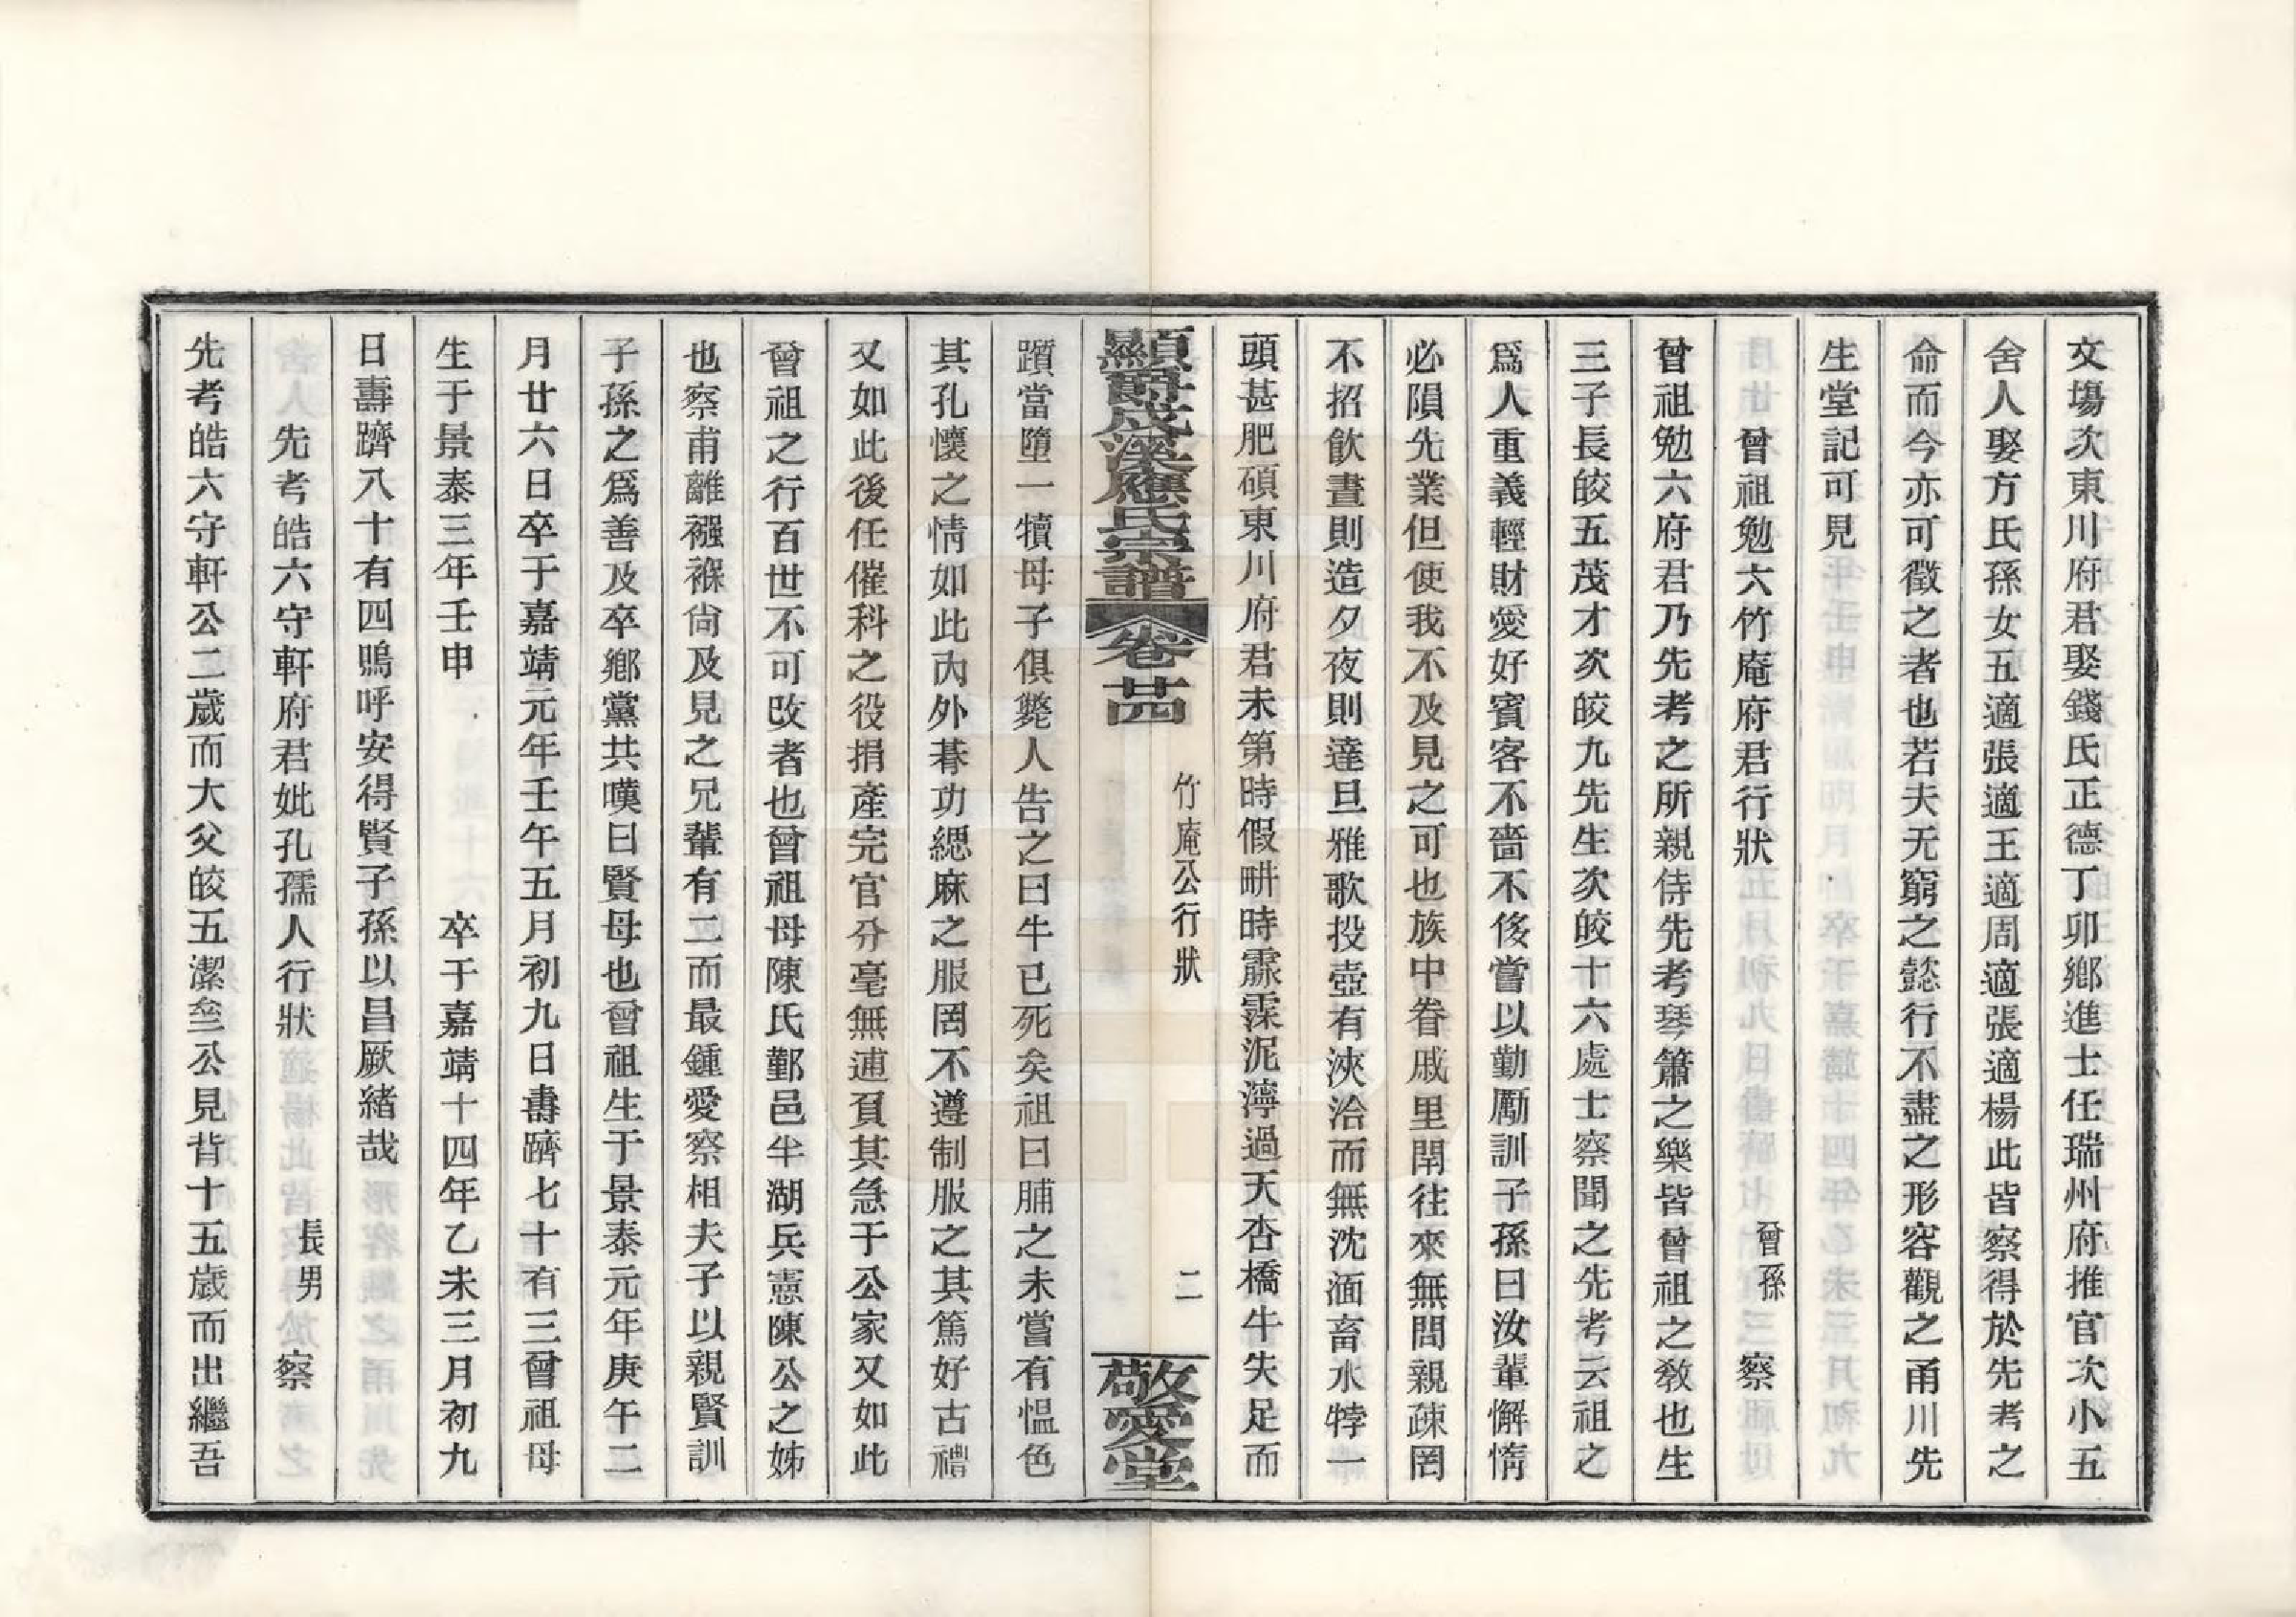 文塲次東川府君娶錢氏正德丁卯鄉進士任瑞州府推官次小五
舍人娶方氏孫女五適張適王適周適張適楊此皆察得於先考之
命而今亦可徵之者也若夫无窮之懿行不盡之形容觀之甬川先
生堂記可見
曾祖勉六竹庵府君行狀 曾孫 察
曾祖勉六府君乃先考之所親侍先考琴簫之樂皆曾祖之教也生
三子長皎五茂才次皎九先生次皎十六處士察聞之先考云祖之
爲人重義輕財愛好賓客不嗇不侈嘗以勤勵訓子孫曰汝輩懈惰
必隕先業但使我不及見之可也族中眷戚里閈往來無間親疎罔
不招飲晝則造夕夜則達旦雅歌投壺有浹洽而無沈湎畜水牸一
頭甚肥碩東川府君未第時假畊時霡霂泥濘過大杏橋牛失足而
顯爵戍溪應氏宗譜 卷廿四 竹庵公行狀 二 敬愛堂
躓當墮一犢母子俱斃人告之曰牛已死矣祖曰脯之未嘗有慍色
其孔懷之情如此內外朞功緦麻之服罔不遵制服之其篤好古禮
又如此後任催科之役捐產完官分毫無逋負其急于公家又如此
曾祖之行百世不可改者也曾祖母陳氏鄞邑半湖兵憲陳公之姊
也察甫離襁褓尙及見之兄輩有二而最鍾愛察相夫子以親賢訓
子孫之爲善及卒鄉黨共嘆曰賢母也曾祖生于景泰元年庚午二
月廿六日卒于嘉靖元年壬午五月初九日壽躋七十有三曾祖母
生于景泰三年壬申 卒于嘉靖十四年乙未三月初九
日壽躋八十有四嗚呼安得賢子孫以昌厥緒哉
先考皓六守軒府君妣孔孺人行狀 長男 察
先考皓六守軒公二歲而大父皎五潔叁公見背十五歲而出繼吾